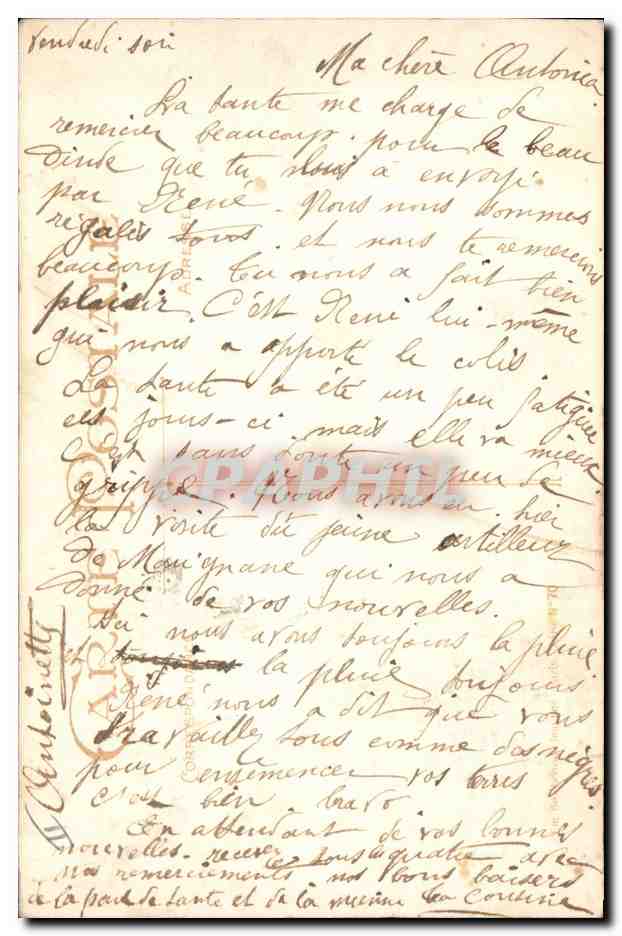 Vendredi soir
Ma chère Antonia
La tante me charge de
remercier beaucoup. pour le beau
Dinde que tu nous a envoyé
par René. Nous nous sommes
régalés tous. et nous te remercions
beaucoup. Tu nous a fait bien
plaisir. C'est René lui-même
qui nous a apporté le colis.
La tante a été un peu fatiguée
ces jours-ci mais elle va mieux
c'est sans doute un peu de
grippe. Nous avons eu hier
la visite du jeune artilleur
de Mauignane qui nous a
donné de vos nouvelles.
Ici nous avons toujours la pluie
et toujours la pluie toujours
René nous a dit que vous
travaillez tous comme des nègres
pour ensemencer vos terres
c'est bien bravo
En attendant de vos bonnes
nouvelles recevez tous les quatre avec
nos remerciements nos bons baisers
de la part de tante et de la mienne ta cousine
Antoinette
CARTE POSTALE
CORRESPONDANCE
ADRESSE
CPAPHIL
N° 70